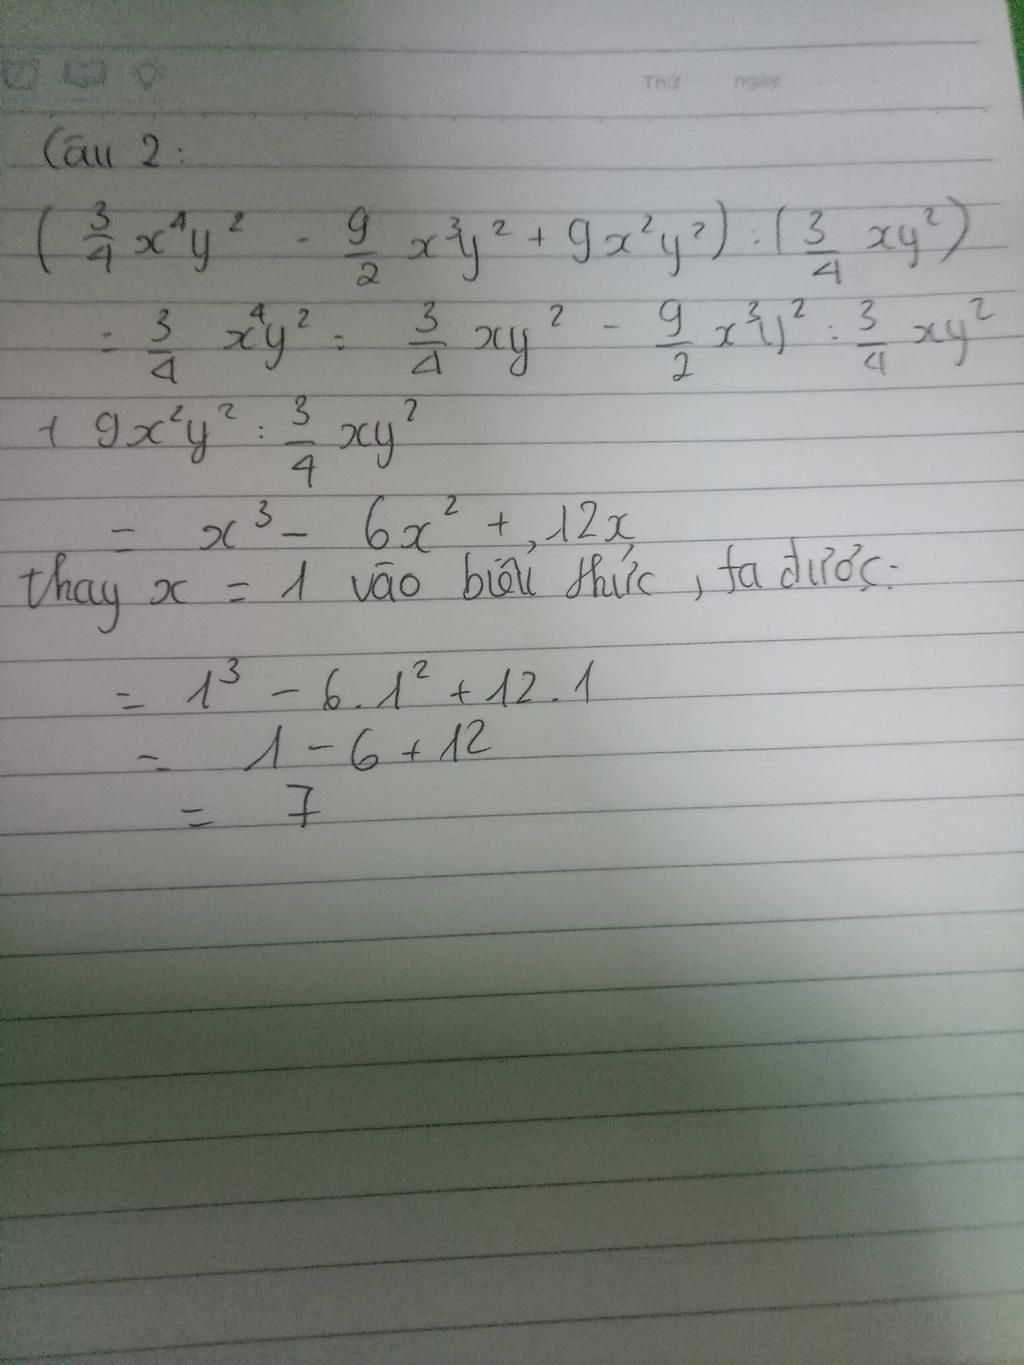 Thứ ngày
Câu 2:
( 3/4 x⁴y² - 9/2 x³y² + 9x²y² ) : ( 3/4 xy² )
= 3/4 x⁴y² : 3/4 xy² - 9/2 x³y² : 3/4 xy²
+ 9x²y² : 3/4 xy²
= x³ - 6x² + 12x
thay x = 1 vào biểu thức, ta được:
= 1³ - 6.1² + 12.1
= 1 - 6 + 12
= 7